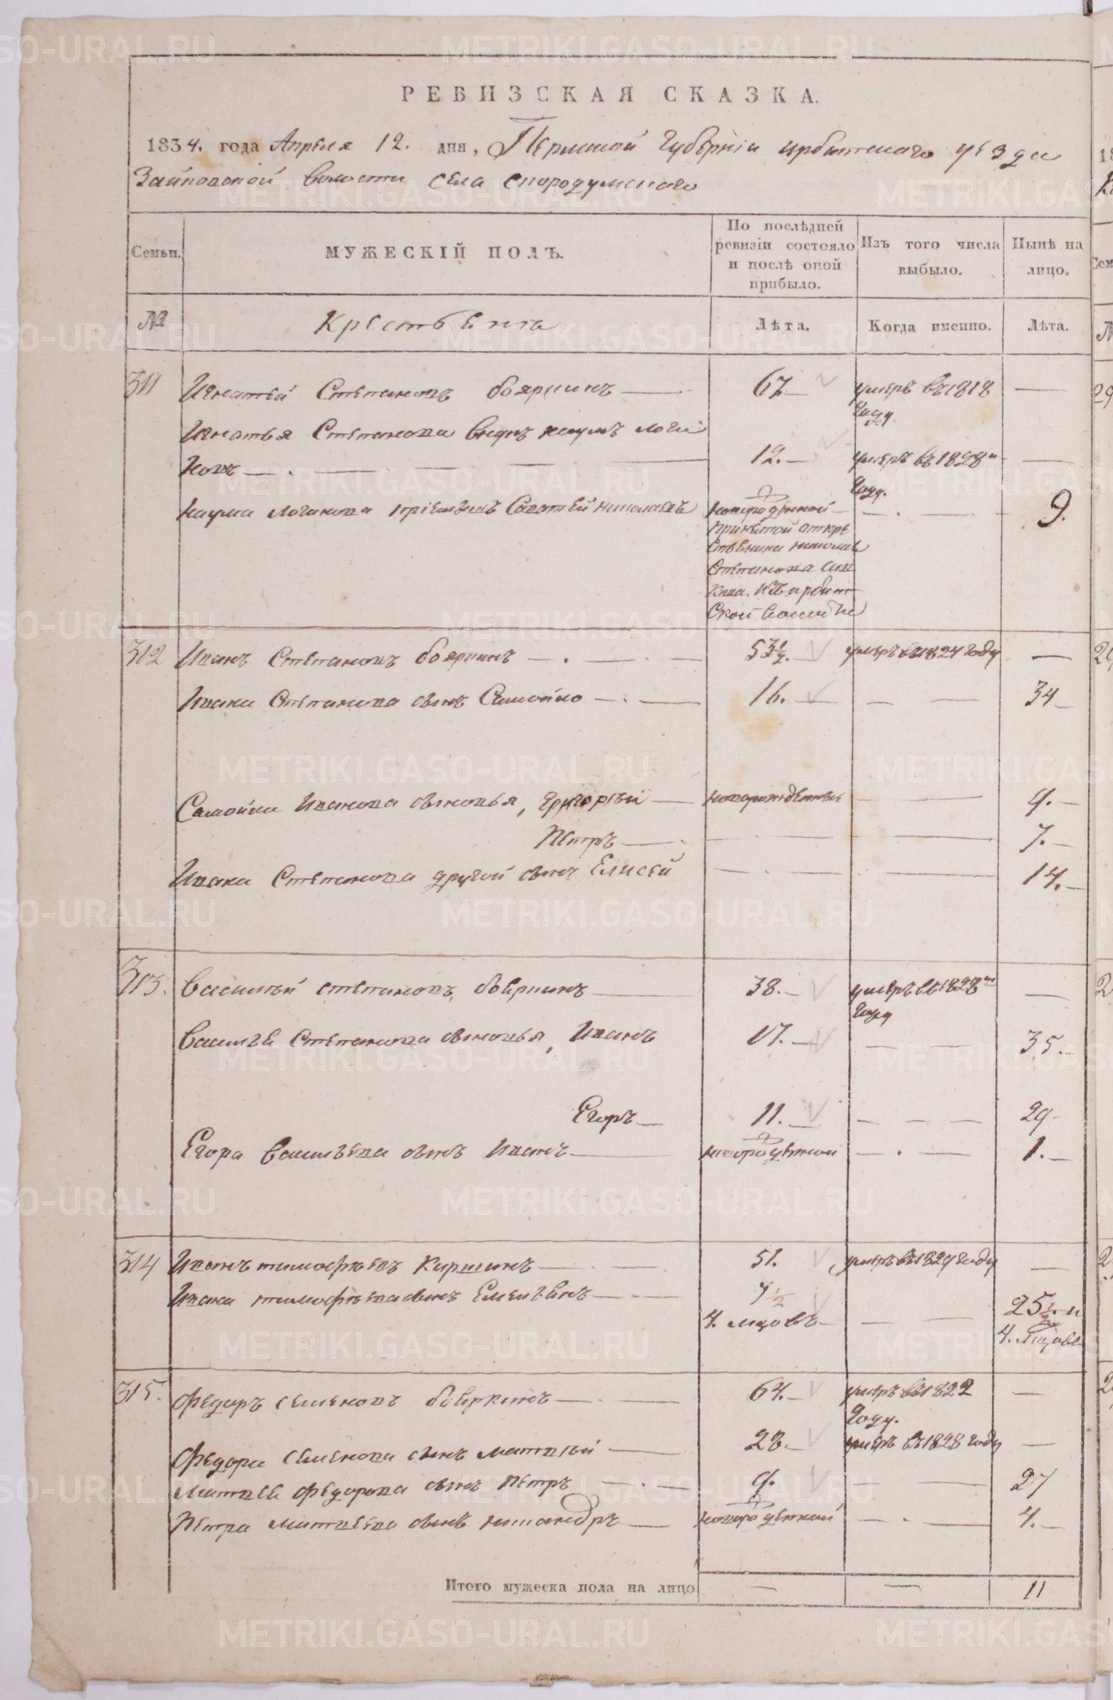 РЕВИЗСКАЯ СКАЗКА.
1834. года Апреля 12. дня, Пермской Губернии Ирбитскаго уезда
Зайковской волости села Скородумскаго
Семьи.
МУЖЕСКІЙ ПОЛЪ.
По послѣдней ревизіи состояло и послѣ оной прибыло.
Изъ того числа выбыло.
Нынѣ на лицо.
№
Крестьяна
Лѣта.
Когда именно.
Лѣта.
311 Игнатей Степановъ бояршинъ 67 умеръ въ 1818
году
Игнатья Степанова внукъ наумъ логи
новъ 12. умеръ въ 1828м
году.
наума логинова пріемышъ Савватей николаевъ новорожденной 9.
принятой откре
стьянина николая
Степанова
312 Иванъ Степановъ бояршинъ 53½. умеръ въ 1824 году
Ивана Степанова сынъ Самойло 16. 34
Самойла Иванова сыновья, Григорей новорожденныя 9.
Петръ 7.
Ивана Степанова другой сынъ Елисей 14.
313. Василей степановъ бояршинъ 38. умеръ въ 1828м
году
Василья Степанова сыновья, Иванъ 17. 35.
Егоръ 11. 29
Егора васильева сынъ Иванъ новорожденной 1.
314 Иванъ тимофѣевъ Киршинъ 51. умеръ въ 1829 году
Ивана тимофѣева сынъ Емельянъ 7½
4. мцовъ 25 и
4. мцовъ
315. Федоръ семеновъ бояркинъ 64. умеръ въ 1822
году.
Федора семенова сынъ матвей 23. умеръ въ 1828 году
Матвея федорова сынъ Петръ 9. 27
Петра матвеева сынъ никандръ новорожденной 4.
Итого мужеска пола на лицо 11
METRIKI.GASO-URAL.RU